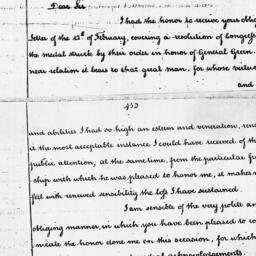 Dear Sir
I had the honor to receive your oblig
letter of the 13th of February, covering a resolution of Congress
the medal struck by their order in honor of General Green.
near relation it bears to that great man, for whose virtue
and
453
and abilities I had so high an esteem and veneration, ren
it the most acceptable instance I could have received of th
public attention; at the same time, from the particular fr
ship with which he was pleased to honor me, it makes
feel with renewed sensibility the loss I have sustained.
I am sensible of the very polite an
obliging manner, in which you have been pleased to co
nicate the honor done me on this occasion, for which
acknowledgements.